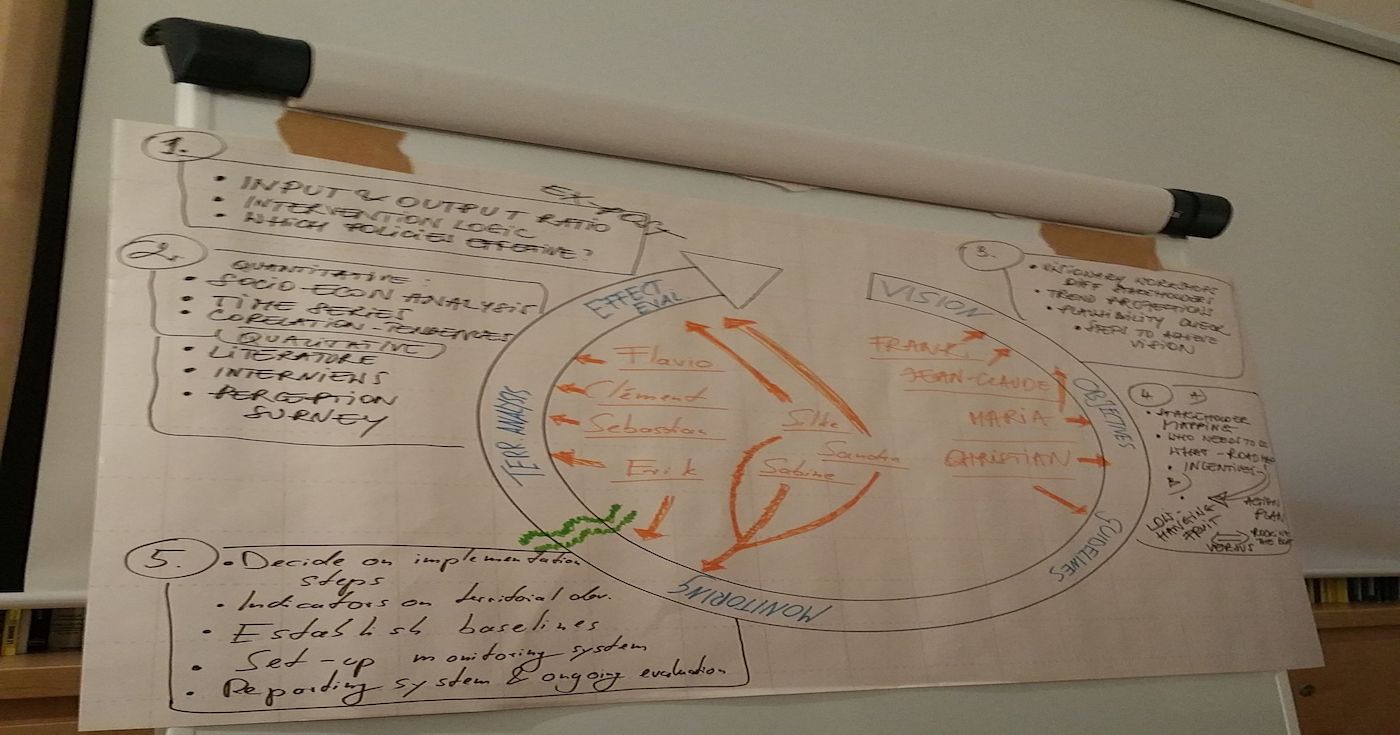 1.
EX-POST
• INPUT & OUTPUT RATIO
• INTERVENTION LOGIC
• WHICH POLICIES EFFECTIVE?
2.
QUANTITATIVE:
• SOCIO ECON ANALYSIS
• TIME SERIES
• CORELATION-TENDENCES
QUALITATIVE
• LITERATURE
• INTERVIEWS
• PERCEPTION
SURVEY
5.
• Decide on implementation
steps
• Indicators on territorial dev.
• Establish baselines
• Set-up monitoring system
• Reporting system & ongoing evaluation
EFFECT
EVAL.
TERR. ANALYSIS
MONITORING
VISION
OBJECTIVES
GUIDELINES
Flavio
Clément
Sebastian
Erik
Silke
Sandra
Sabine
FRANK,
JEAN-CLAUDE
MARIA
CHRISTIAN
3.
• VISIONARY WORKSHOPS
DIFF STAKEHOLDERS
• TREND PROJECTIONS
• PLAUSIBILITY CHECK
• STEPS TO ACHIEVE
VISION
4.
A
• STAKEHOLDER
MAPPING
• WHO NEEDS TO DO
WHAT - ROADMAP
• INCENTIVES!
B
ACTION
PLAN
LOW-
HANGING
FRUIT
VERSUS
ROCKING
THE BOAT